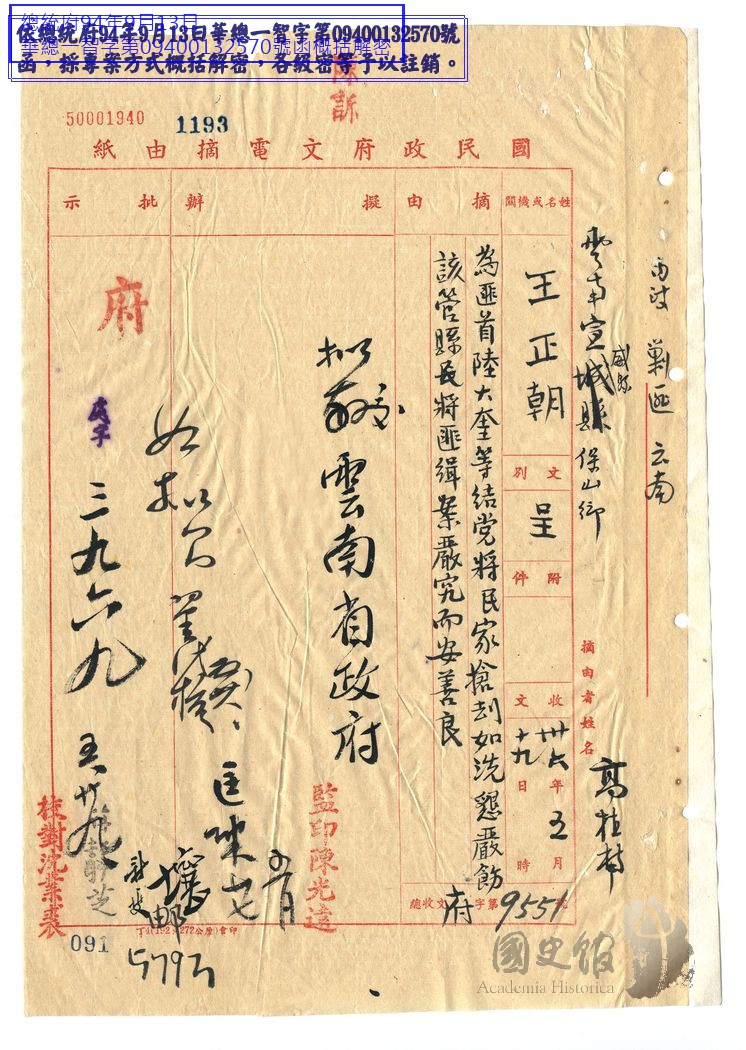 總統府94年9月13日
華總一智字第09400132570號函概括解密
依總統府94年9月13日華總一智字第09400132570號
函，採專案方式概括解密，各級密等予以註銷。
陳訴
50001940
1193
國民政府文電摘由紙
剿匪 云南
雲南宣威縣城縣保山鄉
摘由者姓名
姓名或機關
王正朝
文別
呈
附件
收文
卅六年五月十九日時
府字第9551號
總收文
摘由
為匪首陸大奎等結党將民家搶刦如洗懇嚴飭
該管縣長將匪緝案嚴究而安善良
擬辦
拟交雲南省政府
批示
如拟
府
三九六九
五廿九
監印陳光遠
校對沈業裘
091
國史館
Academia Historica